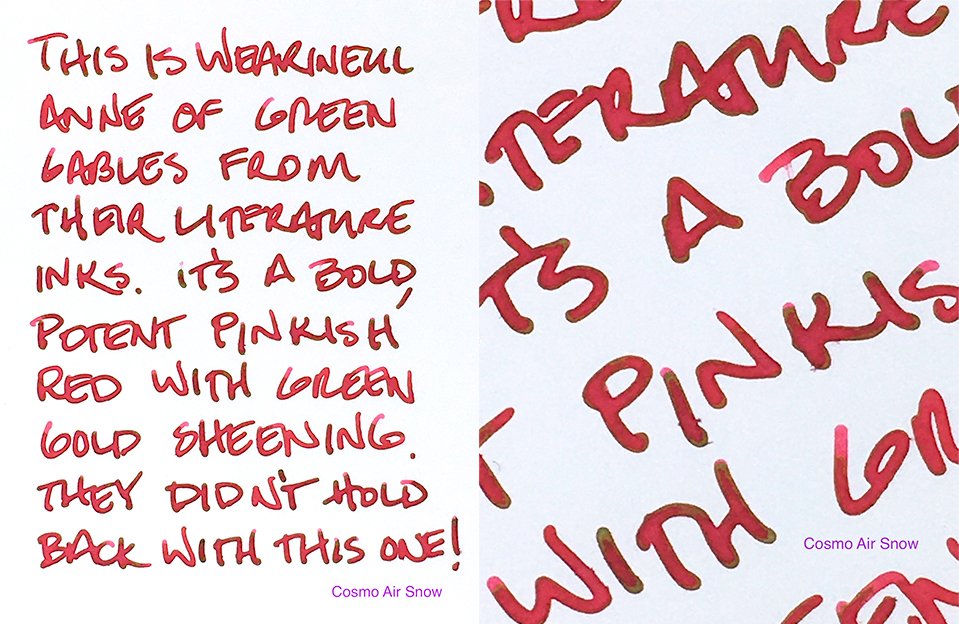 THIS IS WEARINEUL
ANNE OF GREEN
GABLES FROM
THEIR LITERATURE
INKS. IT'S A BOLD,
POTENT PINKISH
RED WITH GREEN
GOLD SHEENING.
THEY DIDN'T HOLD
BACK WITH THIS ONE!
Cosmo Air Snow
ITERATURE
T'S A BOL
T PINKIS
WITH GR
EEN
Cosmo Air Snow